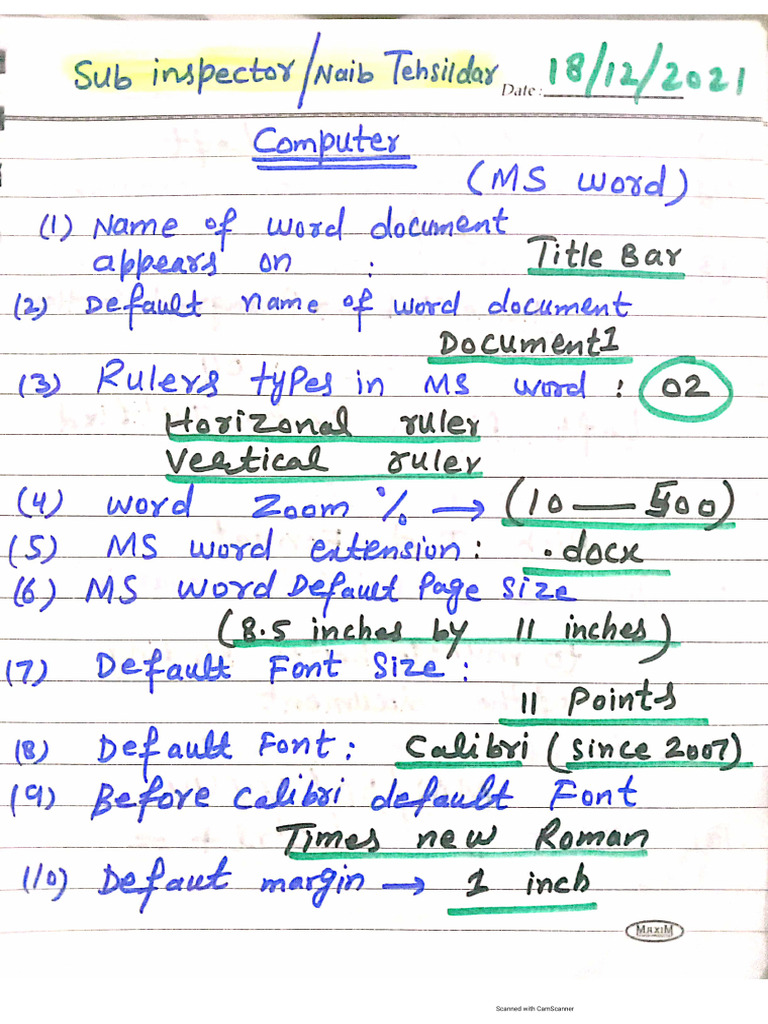 Sub inspector/Naib Tehsildar Date: 18/12/2021
Computer
(MS word)
(1) Name of word document
appears on : Title Bar
(2) Default name of word document
Document1
(3) Rulers types in MS word : 02
Horizonal ruler
Vertical ruler
(4) word Zoom % → (10 — 500)
(5) MS word extension : .docx
(6) MS word Default Page size
(8.5 inches by 11 inches)
(7) Default Font Size :
11 Points
(8) Default Font : Calibri (since 2007)
(9) Before Calibri default Font
Times new Roman
(10) Defaut margin → 1 inch
MAXIM
Scanned with CamScanner